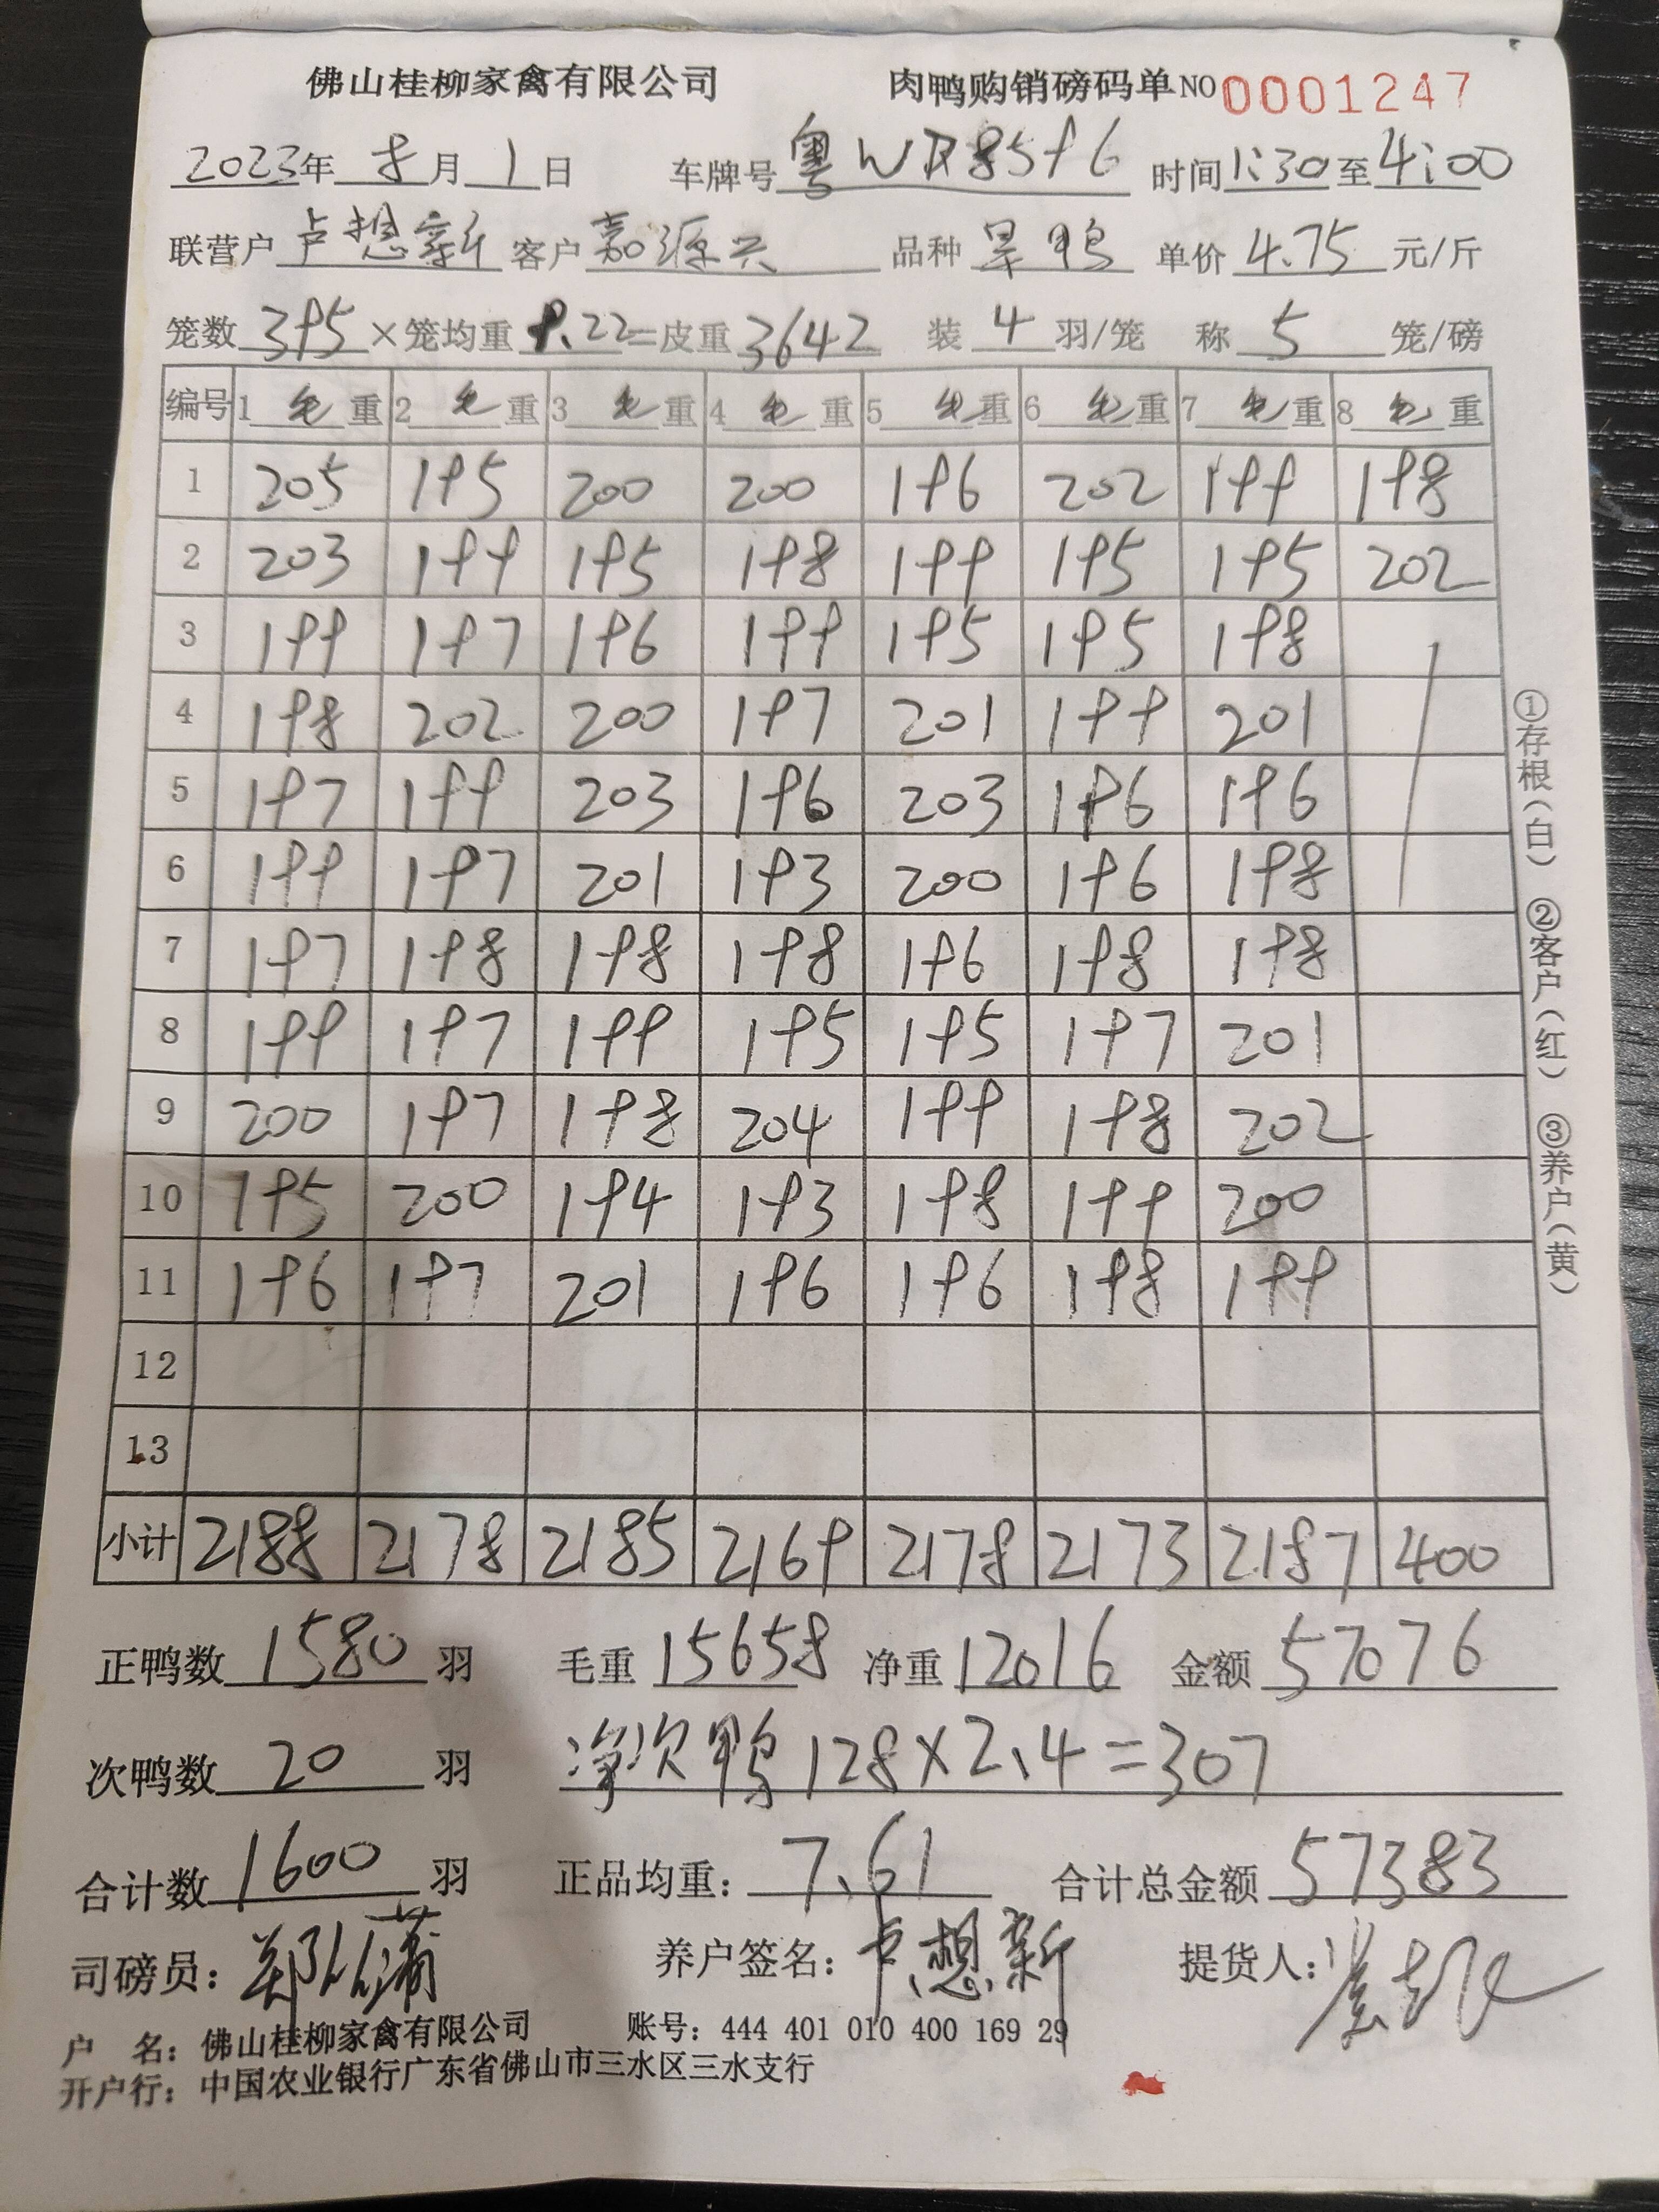 佛山桂柳家禽有限公司 肉鸭购销磅码单 NO 0001247
2023年 8月 1日 车牌号 粤WR8596 时间 1:30 至 4:00
联营户 卢想新 客户 嘉源兴 品种 旱鸭 单价 4.75 元/斤
笼数 395 ×笼均重 9.22 =皮重 3642 装 4 羽/笼 称 5 笼/磅
编号 1 毛重 2 毛重 3 毛重 4 毛重 5 毛重 6 毛重 7 毛重 8 毛重
1 205 195 200 200 196 202 199 198
2 203 199 195 198 199 195 195 202
3 199 197 196 199 195 195 198
4 198 202 200 197 201 199 201
5 197 199 203 196 203 196 196
6 199 197 201 193 200 196 198
7 197 198 198 198 196 198 198
8 199 197 199 195 195 197 201
9 200 197 198 204 199 198 202
10 195 200 194 193 198 199 200
11 196 197 201 196 196 198 199
12
13
小计 2188 2178 2185 2169 2178 2173 2187 400
正鸭数 1580 羽 毛重 15658 净重 12016 金额 57076
次鸭数 20 羽 净次鸭 128×2.4=307
合计数 1600 羽 正品均重: 7.61 合计总金额 57383
司磅员: 养户签名: 卢想新 提货人:
户 名: 佛山桂柳家禽有限公司 账号: 444 401 010 400 169 29
开户行: 中国农业银行广东省佛山市三水区三水支行
①存根(白) ②客户(红) ③养户(黄)